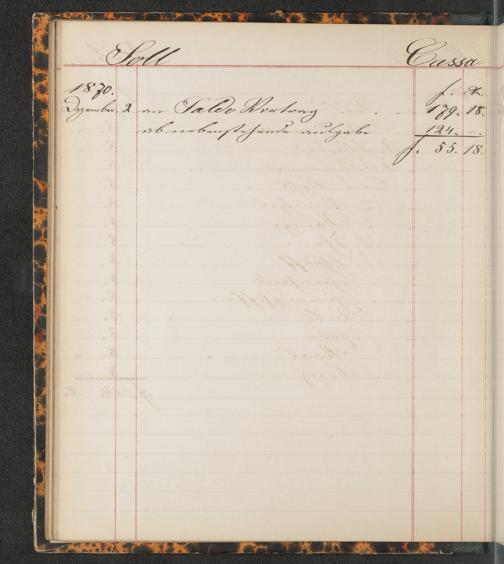 Soll Cassa
1870. f. x.
Dezember. 2 an Saldo Vortrag . . 179. 18.
ab nebenstehende ausgabe 124. -.
f. 55. 18.